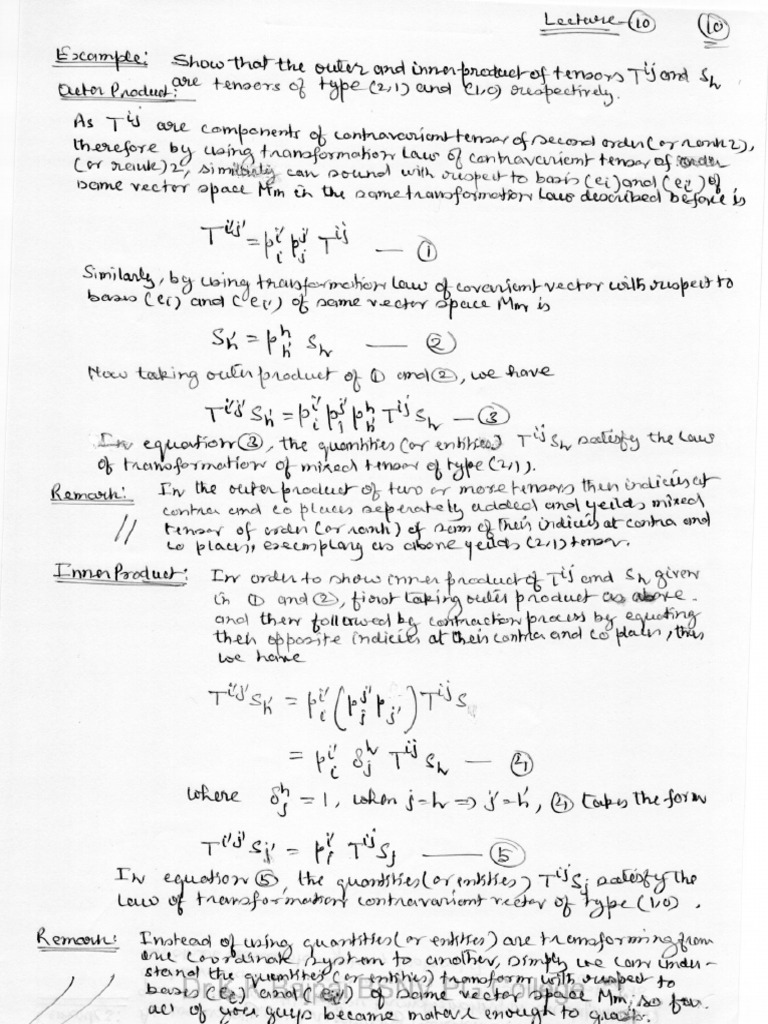 Lecture-(10) (10)
Example: Show that the outer and inner product of tensors T^{ij} and S_h
are tensors of type (2,1) and (1,0) respectively.
Outer Product:
As T^{ij} are components of contravarient tensor of second order (or rank 2),
therefore by using transformation law of contravarient tensor of order
(or rank) 2, similarly can sound with respect to basis (e_i) and (e_{i'}) of
same vector space Mm in the same transformation law described before is
T^{i'j'} = p^{i'}_i p^{j'}_j T^{ij} — ①
Similarly, by using transformation law of covarient vector with respect to
bases (e_i) and (e_{i'}) of same vector space Mm is
S_{h'} = p^h_{h'} S_h — ②
Now taking outer product of ① and ②, we have
T^{i'j'} S_{h'} = p^{i'}_i p^{j'}_j p^h_{h'} T^{ij} S_h — ③
In equation ③, the quantities (or entities) T^{ij} S_h satisfy the law
of transformation of mixed tensor of type (2,1).
Remark: In the outer product of two or more tensors then indicies at
contra and co places seperately added and yeilds mixed
tensor of order (or rank) of sum of their indicies at contra and
co places, exemplary as above yeilds (2,1) tensor.
Inner Product: In order to show inner product of T^{ij} and S_h given
in ① and ②, first taking outer product as above.
and then followed by contraction process by equating
then opposite indicies at their contra and co places, thus
we have
T^{i'j'} S_{h'} = p^{i'}_i (p^{j'}_j p_{j'}) T^{ij} S
= p^{i'}_i δ^h_j T^{ij} S_h — ④
where δ^h_j = 1, when j=h => j'=h', ④ takes the form
T^{i'j'} S_{j'} = p^{i'}_i T^{ij} S_j — ⑤
In equation ⑤, the quantities (or entities) T^{ij} S_j satisfy the
law of transformation contravarient vector of type (1,0).
Remark: Instead of using quantities (or entities) are transforming from
one coordinate system to another, simply we can under-
stand the quantities (or entities) transform with respect to
bases (e_i) and (e_{i'}) of same vector space Mm, so far
act of you guys became mature enough to